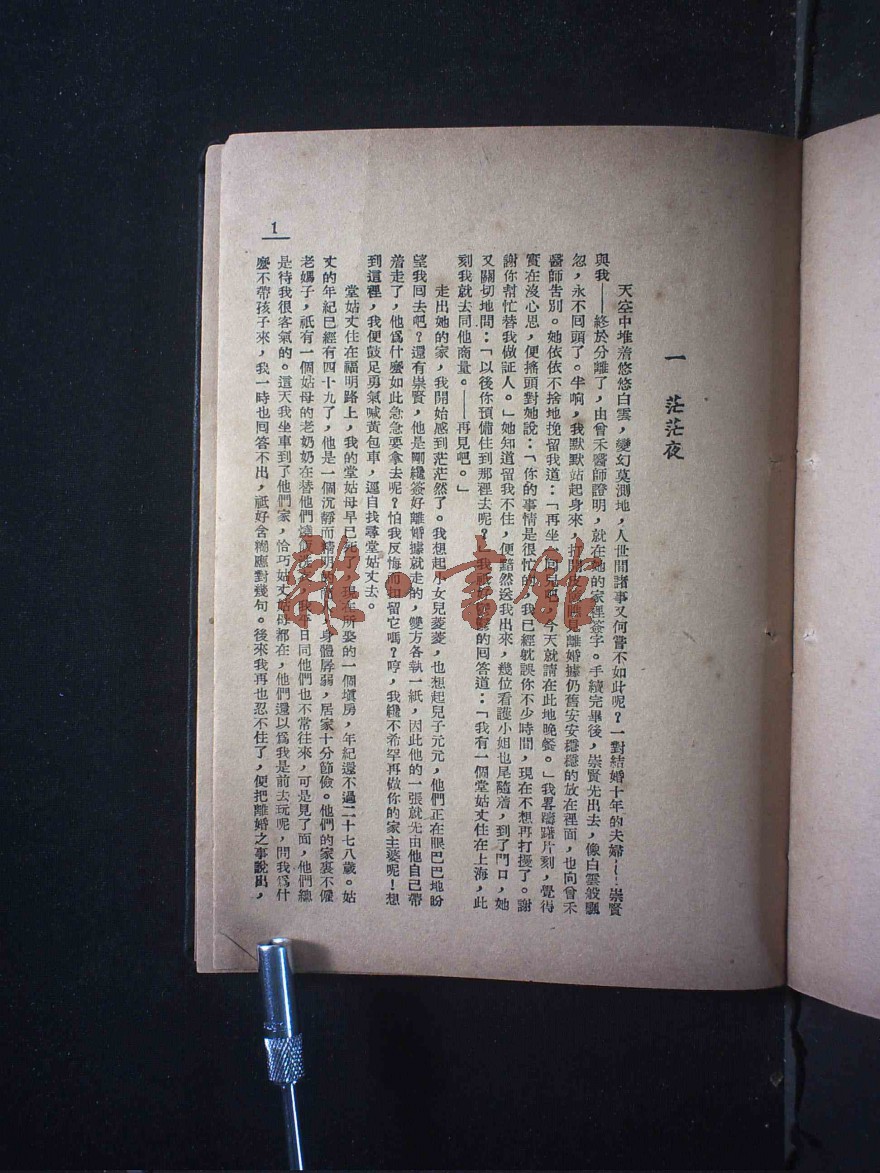 一　茫茫夜
天空中堆着悠悠白雲，變幻莫測地，人世間諸事又何嘗不如此呢？一對結婚十年的夫婦——崇賢
與我——終於分離了，由曾禾醫師證明，就在她的家裡簽字。手續完畢後，崇賢先出去，像白雲般飄
忽，永不回頭了。半晌，我默默站起身來，打開皮　瞧見離婚據仍舊安安穩穩的放在裡面，也向曾禾
醫師告別。她依依不捨地挽留我道：「再坐一回兒吧，今天就請在此地晚餐。」我畧躊躇片刻，覺得
實在沒心思，便搖頭對她說：「你的事情是很忙的，我已經躭誤你不少時間，現在不想再打擾了。謝
謝你幫忙替我做証人。」她知道留我不住，便黯然送我出來，幾位看護小姐也尾隨着，到了門口，她
又關切地問：「以後你預備住到那裡去呢？」我　　的回答道：「我有一個堂姑丈住在上海，此
刻我就去同他商量。——再見吧。」
走出她的家，我開始感到茫茫然了。我想起小女兒菱菱，也想起兒子元元，他們正在眼巴巴地盼
望我回去吧？還有崇賢，他是剛纔簽好離婚據就走的，雙方各執一紙，因此他的一張就先由他自己帶
着走了，他爲什麼如此急急要拿去呢？怕我反悔而扣留它嗎？哼，我纔不希罕再做你的家主婆呢！想
到這裡，我便鼓足勇氣喊黃包車，逕自找尋堂姑丈去。
堂姑丈住在福明路上，我的堂姑母早已死了，現在所娶的一個塡房，年紀還不過二十七八歲。姑
丈的年紀已經有四十九了，他是一個沉靜而精明的　，身體孱弱，居家十分節儉。他們的家裏不僱
老媽子，祇有一個姑母的老奶奶在替他們燒飯洗衣，我平日同他們也不常往來，可是見了面，他們總
是待我很客氣的。這天我坐車到了他們家，恰巧姑丈姑母都在，他們還以爲我是前去玩呢，問我爲什
麼不帶孩子來，我一時也回答不出，祇好含糊應對幾句。後來我再也忍不住了，便把離婚之事說出，
1
雜·書館